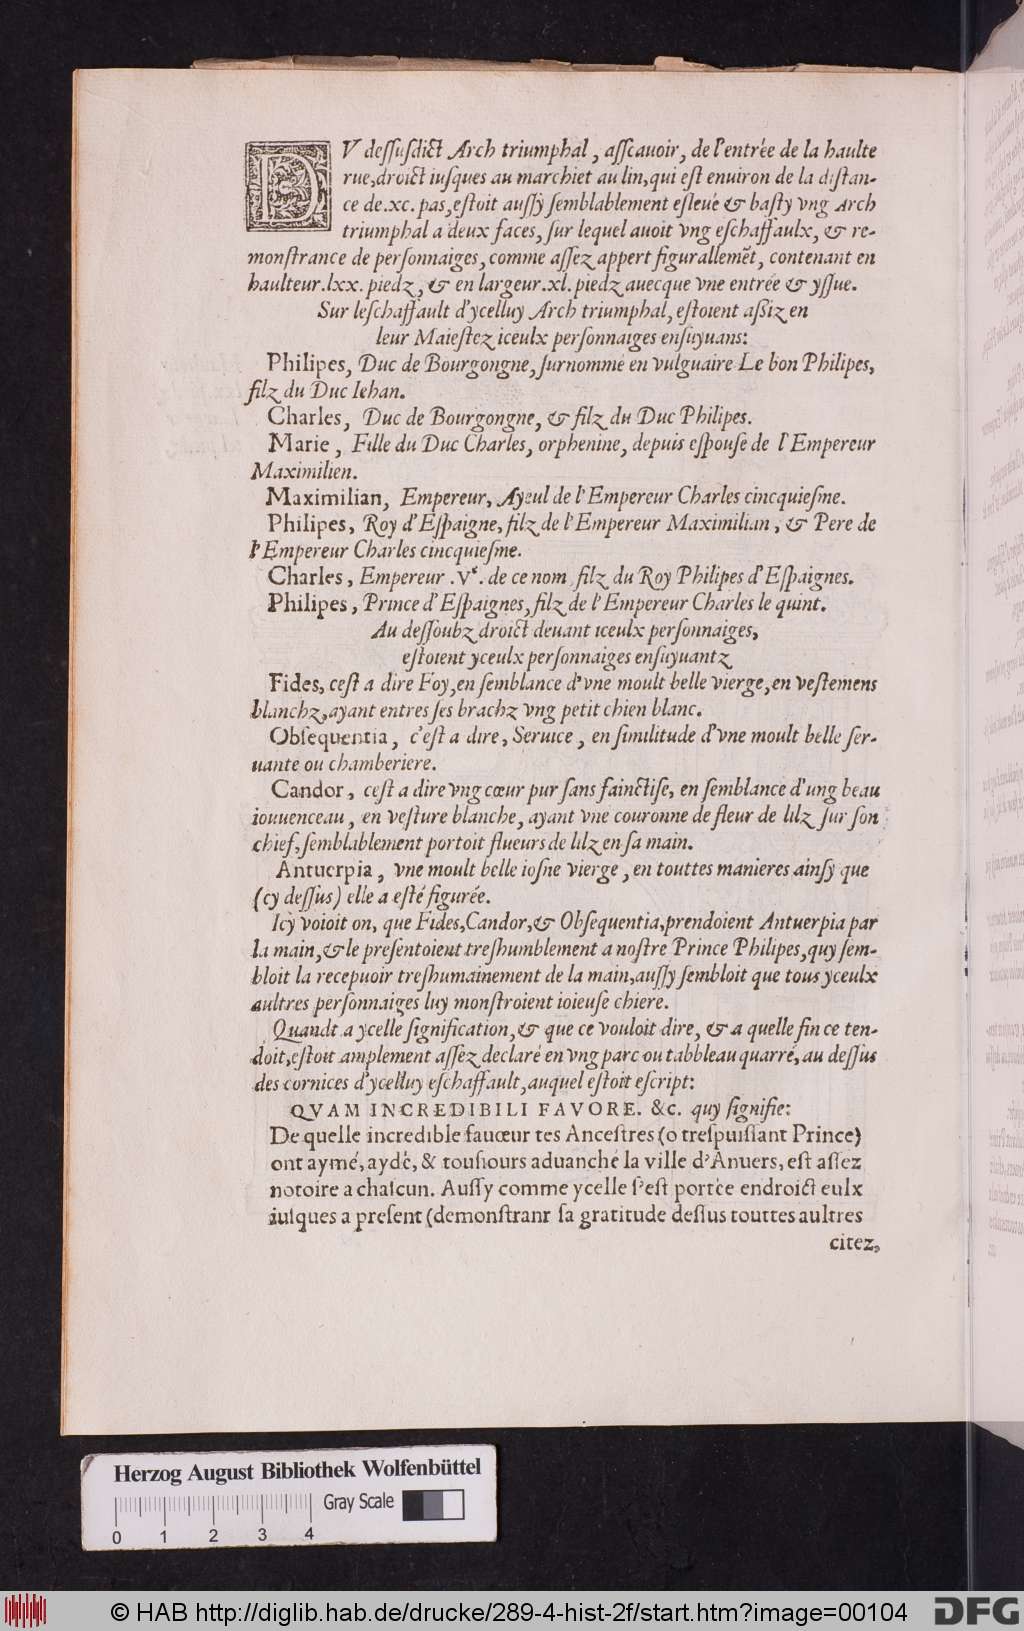 DV deſſuſdict Arch triumphal, aſſcauoir, de l'entrée de la haulte
rue, droict iuſques au marchiet au lin, qui eſt enuiron de la diſtan-
ce de .xc. pas, eſtoit auſſy ſemblablement eſleué & baſty vng Arch
triumphal a deux faces, ſur lequel auoit vng eſchaffaulx, & re-
monſtrance de perſonnaiges, comme aſſez appert figurallemēt, contenant en
haulteur .lxx. piedz, & en largeur .xl. piedz auecque vne entrée & yſſue.
Sur leſchaffault d'ycelluy Arch triumphal, eſtoient aſsiz en
leur Maieſtez iceulx perſonnaiges enſuyuans:
Philipes, Duc de Bourgongne, ſurnommé en vulguaire Le bon Philipes,
filz du Duc Iehan.
Charles, Duc de Bourgongne, & filz du Duc Philipes.
Marie, Fille du Duc Charles, orphenine, depuis eſpouſe de l'Empereur
Maximilien.
Maximilian, Empereur, Ayeul de l'Empereur Charles cincquieſme.
Philipes, Roy d'Eſpaigne, filz de l'Empereur Maximilian, & Pere de
l'Empereur Charles cincquieſme.
Charles, Empereur .Vᵉ. de ce nom filz du Roy Philipes d'Eſpaignes.
Philipes, Prince d'Eſpaignes, filz de l'Empereur Charles le quint.
Au deſſoubz droict deuant iceulx perſonnaiges,
eſtoient yceulx perſonnaiges enſuyuantz
Fides, ceſt a dire Foy, en ſemblance d'vne moult belle vierge, en veſtemens
blanchz, ayant entres ſes brachz vng petit chien blanc.
Obſequentia, c'eſt a dire, Seruice, en ſimilitude d'vne moult belle ſer-
uante ou chamberiere.
Candor, ceſt a dire vng cœur pur ſans fainctiſe, en ſemblance d'ung beau
iouuenceau, en veſture blanche, ayant vne couronne de fleur de lilz ſur ſon
chief, ſemblablement portoit flueurs de lilz en ſa main.
Antuerpia, vne moult belle ioſne vierge, en touttes manieres ainſy que
(cy deſſus) elle a eſté figurée.
Icy voioit on, que Fides, Candor, & Obſequentia, prendoient Antuerpia par
la main, & le preſentoient treſhumblement a noſtre Prince Philipes, quy ſem-
bloit la recepuoir treſhumainement de la main, auſſy ſembloit que tous yceulx
aultres perſonnaiges luy monſtroient ioieuſe chiere.
Quandt a ycelle ſignification, & que ce vouloit dire, & a quelle fin ce ten-
doit, eſtoit amplement aſſez declaré en vng parc ou tabbleau quarré, au deſſus
des cornices d'ycelluy eſchaffault, auquel eſtoit eſcript:
QVAM INCREDIBILI FAVORE. &c. quy ſignifie:
De quelle incredible fauœur tes Anceſtres (o treſpuiſſant Prince)
ont aymé, aydé, & touſiours aduanché la ville d'Anuers, eſt aſſez
notoire a chaſcun. Auſſy comme ycelle ſ'eſt portée endroict eulx
iuſques a preſent (demonſtranr ſa gratitude deſſus touttes aultres
citez,
Herzog August Bibliothek Wolfenbüttel
Gray Scale
0 1 2 3 4
© HAB http://diglib.hab.de/drucke/289-4-hist-2f/start.htm?image=00104
DFG